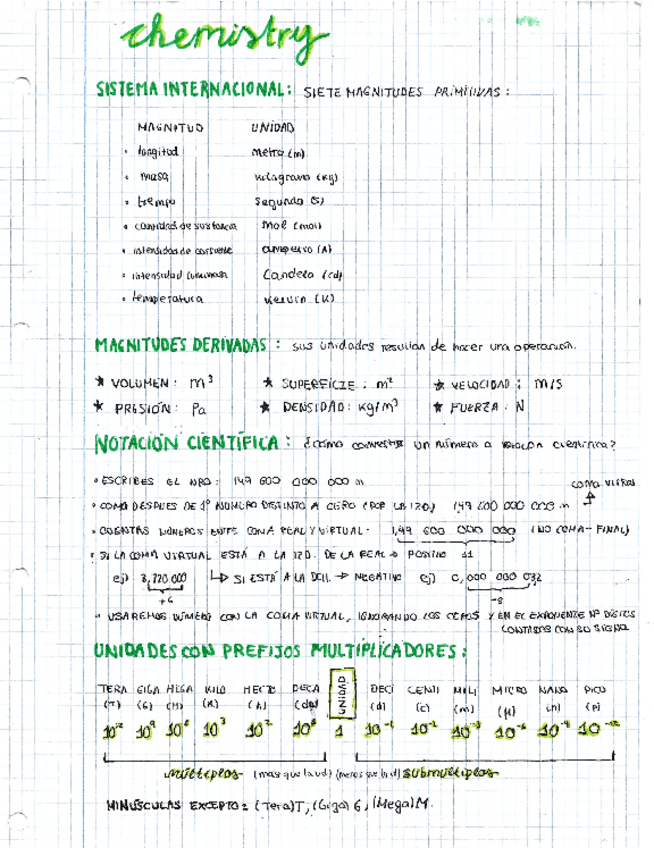 chemistry
SISTEMA INTERNACIONAL: SIETE MAGNITUDES PRIMITIVAS:
MAGNITUD UNIDAD
• longitud metro (m)
• masa kilogramo (kg)
• tiempo segundo (s)
• cantidad de sustancia mol (mol)
• intensidad de corriente amperio (A)
• intensidad luminosa Candela (cd)
• temperatura kelvin (K)
MAGNITUDES DERIVADAS: sus unidades resultan de hacer una operación.
★ VOLUMEN: m³ ★ SUPERFICIE: m² ★ VELOCIDAD: m/s
★ PRESIÓN: Pa ★ DENSIDAD: kg/m³ ★ FUERZA: N
NOTACIÓN CIENTÍFICA: ¿cómo convertir un número a notación científica?
• ESCRIBES EL NRO: 149 600 000 000 m
COMA VIRTUAL
• COMA DESPUES DE 1º NUMERO DISTINTO A CERO (POR LA IZQ) 149 600 000 000 m
• CUENTAS NÚMEROS ENTRE COMA REAL Y VIRTUAL. 1,49 600 000 000 (NO COMA-FINAL)
• SI LA COMA VIRTUAL ESTÁ A LA IZQ. DE LA REAL → POSITIVO 11
ej) 3,720 000 ↳ SI ESTÁ A LA DCH. → NEGATIVO ej) 0,000 000 032
+6 -8
• USAREMOS NÚMERO CON LA COMA VIRTUAL, IGNORANDO LOS CEROS Y EN EL EXPONENTE Nº DÍGITOS
CONTADOS CON SU SIGNO
UNIDADES CON PREFIJOS MULTIPLICADORES:
TERA GIGA MEGA KILO HECTO DECA UNIDAD DECI CENTI MILI MICRO NANO PICO
(T) (G) (M) (K) (h) (da) (d) (c) (m) (μ) (n) (p)
10¹² 10⁹ 10⁶ 10³ 10² 1 10⁻¹ 10⁻² 10⁻³ 10⁻⁶ 10⁻⁹ 10⁻¹²
múltiplos (mas que la ud) (menos que la ud) submúltiplos
MINÚSCULAS EXCEPTO: (Tera)T, (Giga) G, (Mega)M.